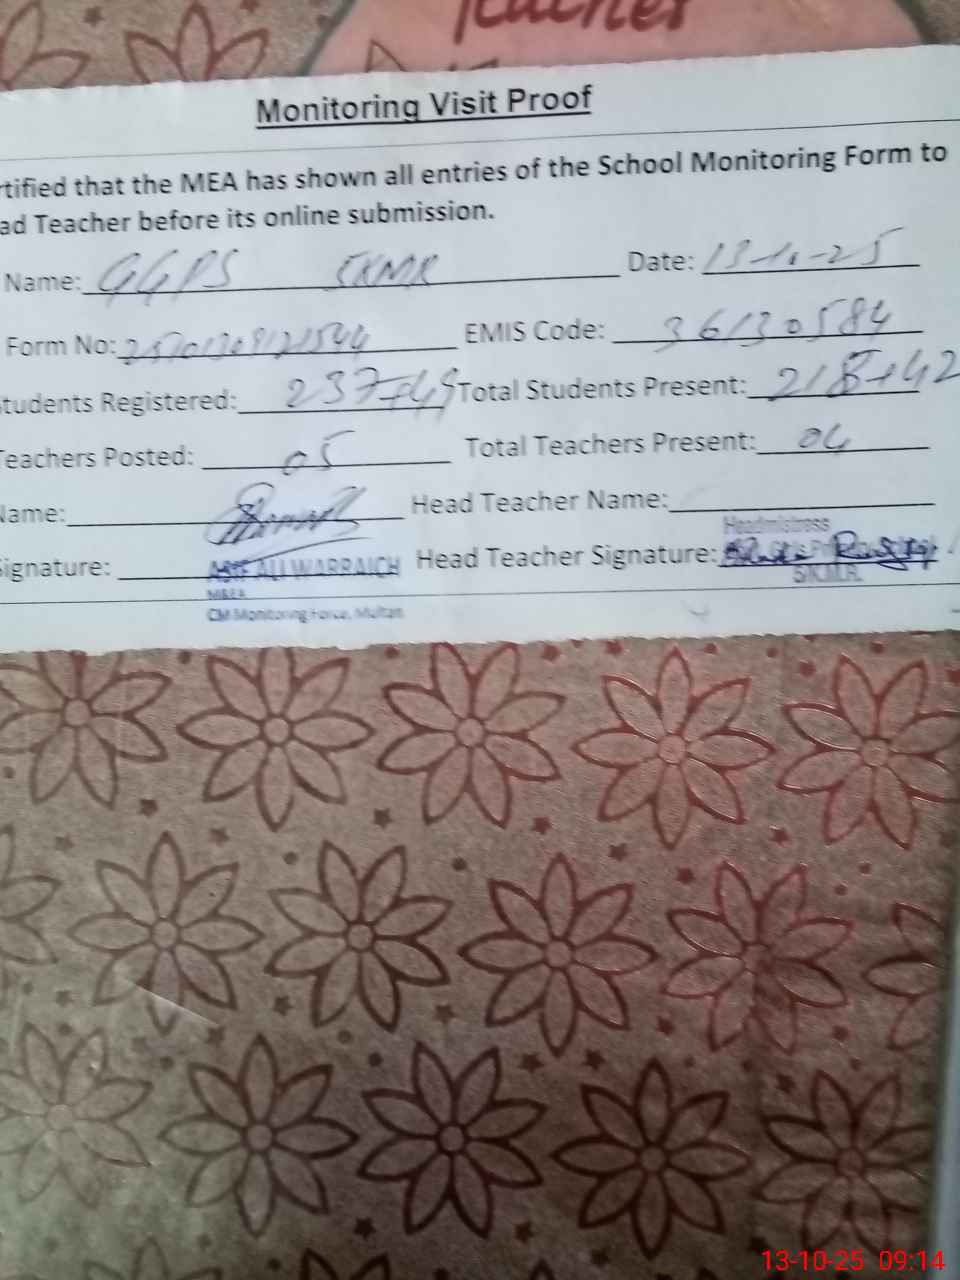 Teacher
Monitoring Visit Proof
rtified that the MEA has shown all entries of the School Monitoring Form to
ad Teacher before its online submission.
Name: GGPS SKMR Date: 13-10-25
Form No: EMIS Code: 36130584
tudents Registered: 237+49 Total Students Present: 218+42
Teachers Posted: 05 Total Teachers Present: 04
Name: Head Teacher Name:
Signature: ASIF ALI WARRAICH Head Teacher Signature: Headmistress
M&EA S.K.M.R.
CM Monitoring Force, Multan
13-10-25 09:14